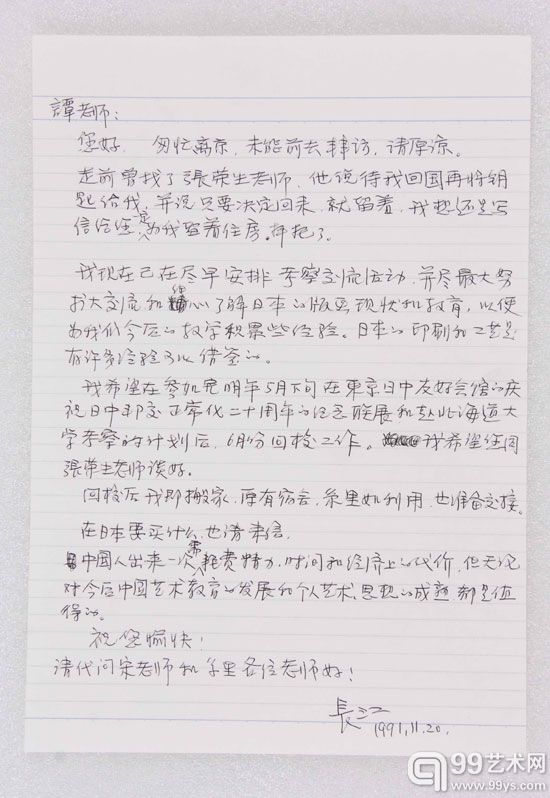 譚老师：
您好。匆忙离京，未能前去拜访，请原谅。
走前曾找了張荣生老师，他说待我回国再将钥
匙给我，并说只要决定回来，就留着，我想还是写
信给您定为我留着住房。拜托了。
我现在已在尽早安排考察交流活动，并尽最大努
力扩大交流和细心了解日本的版画现状和教育，以便
为我们今后的教学积累些经验。日本的印刷和工艺是
有许多经验可以借鉴的。
我希望在参加完明年5月下旬在東京日中友好会馆的庆
祝日中邦交正常化二十周年的纪念联展和赴北海道大
学考察的计划后，6月份回校工作。我希望您同
張荣生老师谈好。
回校后我即搬家，原有宿舍，系里如利用，也准备交接。
在日本要买什么，也请来信。
中国人出来一次需耗费精力、时间和经济上的代价，但无论
对今后中国艺术教育的发展和个人艺术、思想的成熟都是值
得的。
祝您愉快！
请代问宋老师和系里各位老师好！
長江
1991.11.20.
99艺术网
www.99ys.com